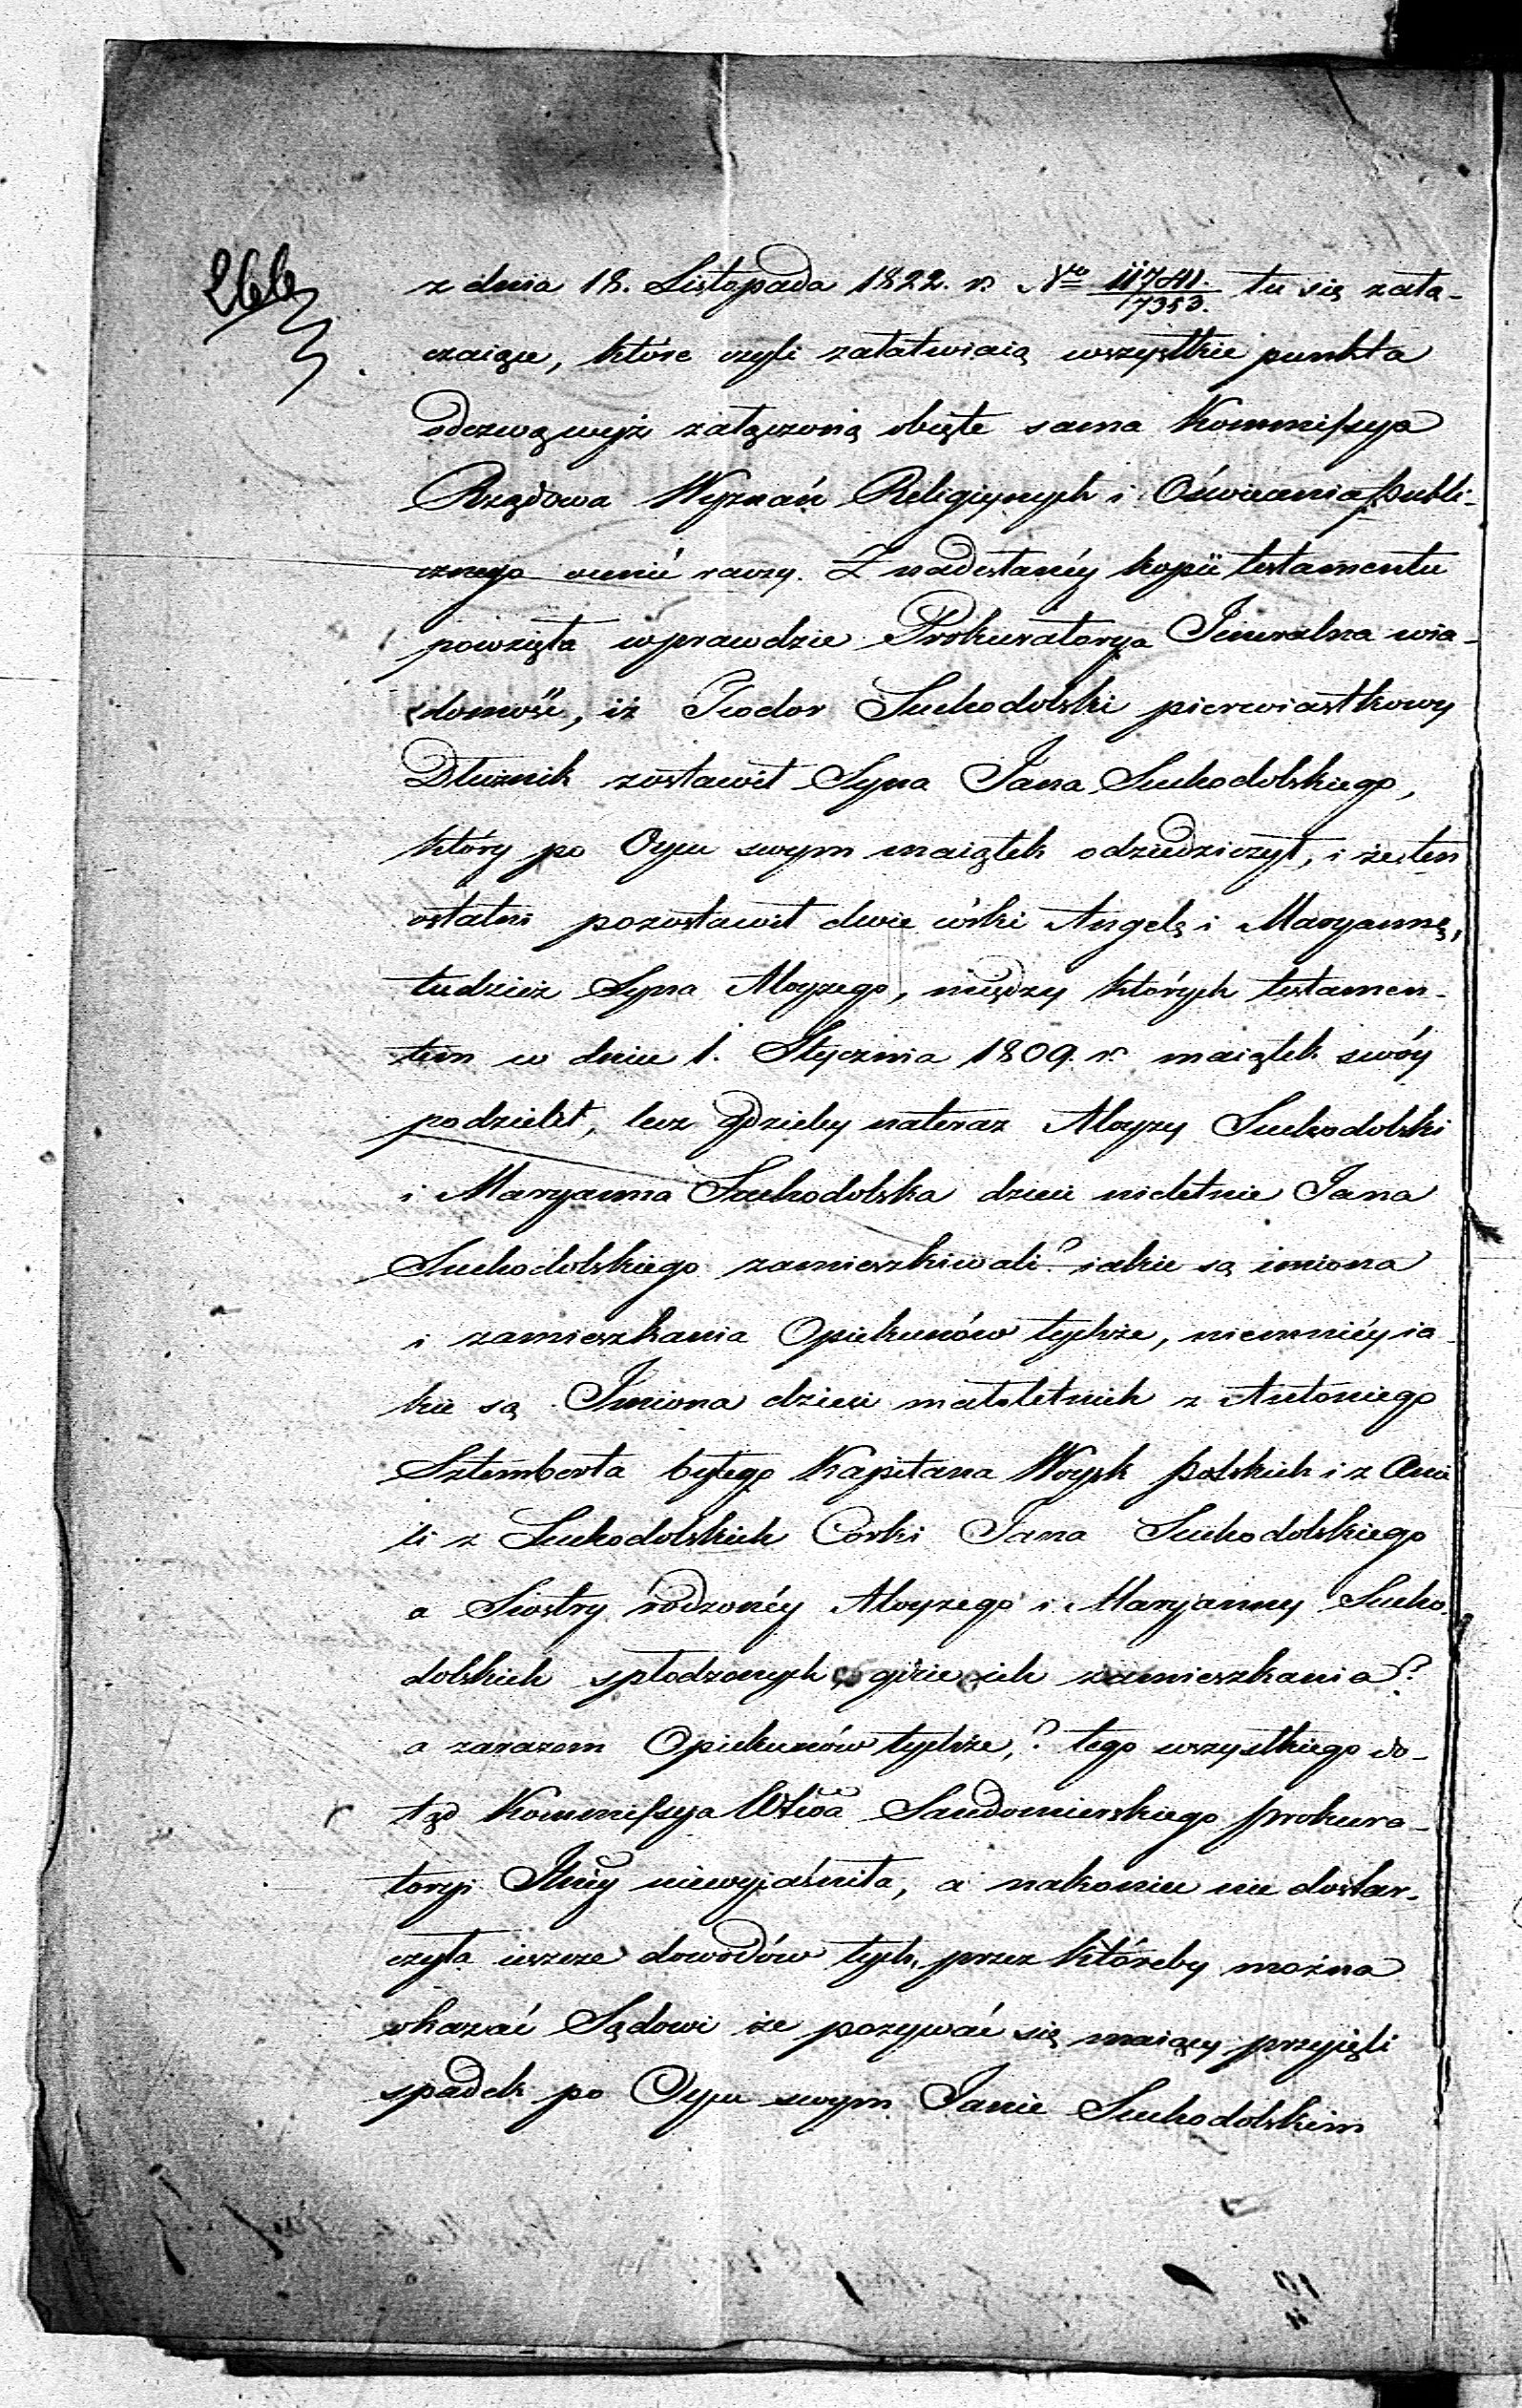 266
z dnia 18. Listopada 1822. r. Nro 11741./7353. tu się załą-
czaiące, które czyli załatwiaią wszystkie punkta
odezwą wyż załączoną obięte sama Kommissya
Rządowa Wyznań Religiynych i Oświecenia publi-
cznego ocenić raczy. Z nadesłanéy kopii testamentu
powzięła wprawdzie Prokuratorya Jeneralna wia-
domość, iż Teodor Suchodolski pierwiastkowy
Dłużnik zostawił Syna Jana Suchodolskiego,
który po Oycu swym maiątek odziedziczył, i że ten
ostatni pozostawił dwie córki Angelę i Maryannę,
tudzież Syna Aloyzego, między których testamen-
tem w dniu 1. Stycznia 1809. r. maiątek swóy
podzielił, lecz gdzieby nateraz Aloyzy Suchodolski
i Maryanna Suchodolska dzieci nieletnie Jana
Suchodolskiego zamieszkiwali? iakie są imiona
i zamieszkania Opiekunów tychże, niemniéy ia-
kie są Imiona dzieci małoletnich z Antoniego
Sztemberta byłego Kapitana Woysk polskich i z Anie
li z Suchodolskich Corki Jana Suchodolskiego
a Siostry rodzonéy Aloyzego i Maryanny Sucho
dolskich spłodzonych, gdzie ich zamieszkania?
a zarazem Opiekunów tychże,? tego wszystkiego do-
tąd Kommissya Wtwa Sandomierskiego prokura-
toryi Jlnéy niewyiaśniła, a nakoniec nie dostar-
czyła ieszcze dowodów tych, przez któreby można
okazać Sądowi że pozywać się maiący przyięli
spadek po Oycu swym Janie Suchodolskim